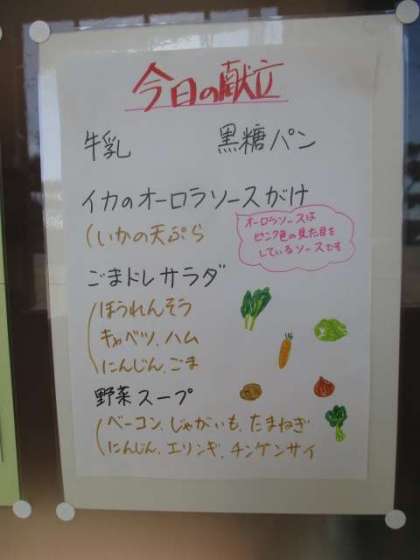 今日の献立
牛乳 黒糖パン
イカのオーロラソースがけ
(いかの天ぷら
オーロラソースは
ピンク色の見た目を
しているソースです
ごまドレサラダ
(ほうれんそう
キャベツ、ハム
にんじん、ごま
野菜スープ
(ベーコン、じゃがいも、たまねぎ
にんじん、エリンギ、チンゲンサイ